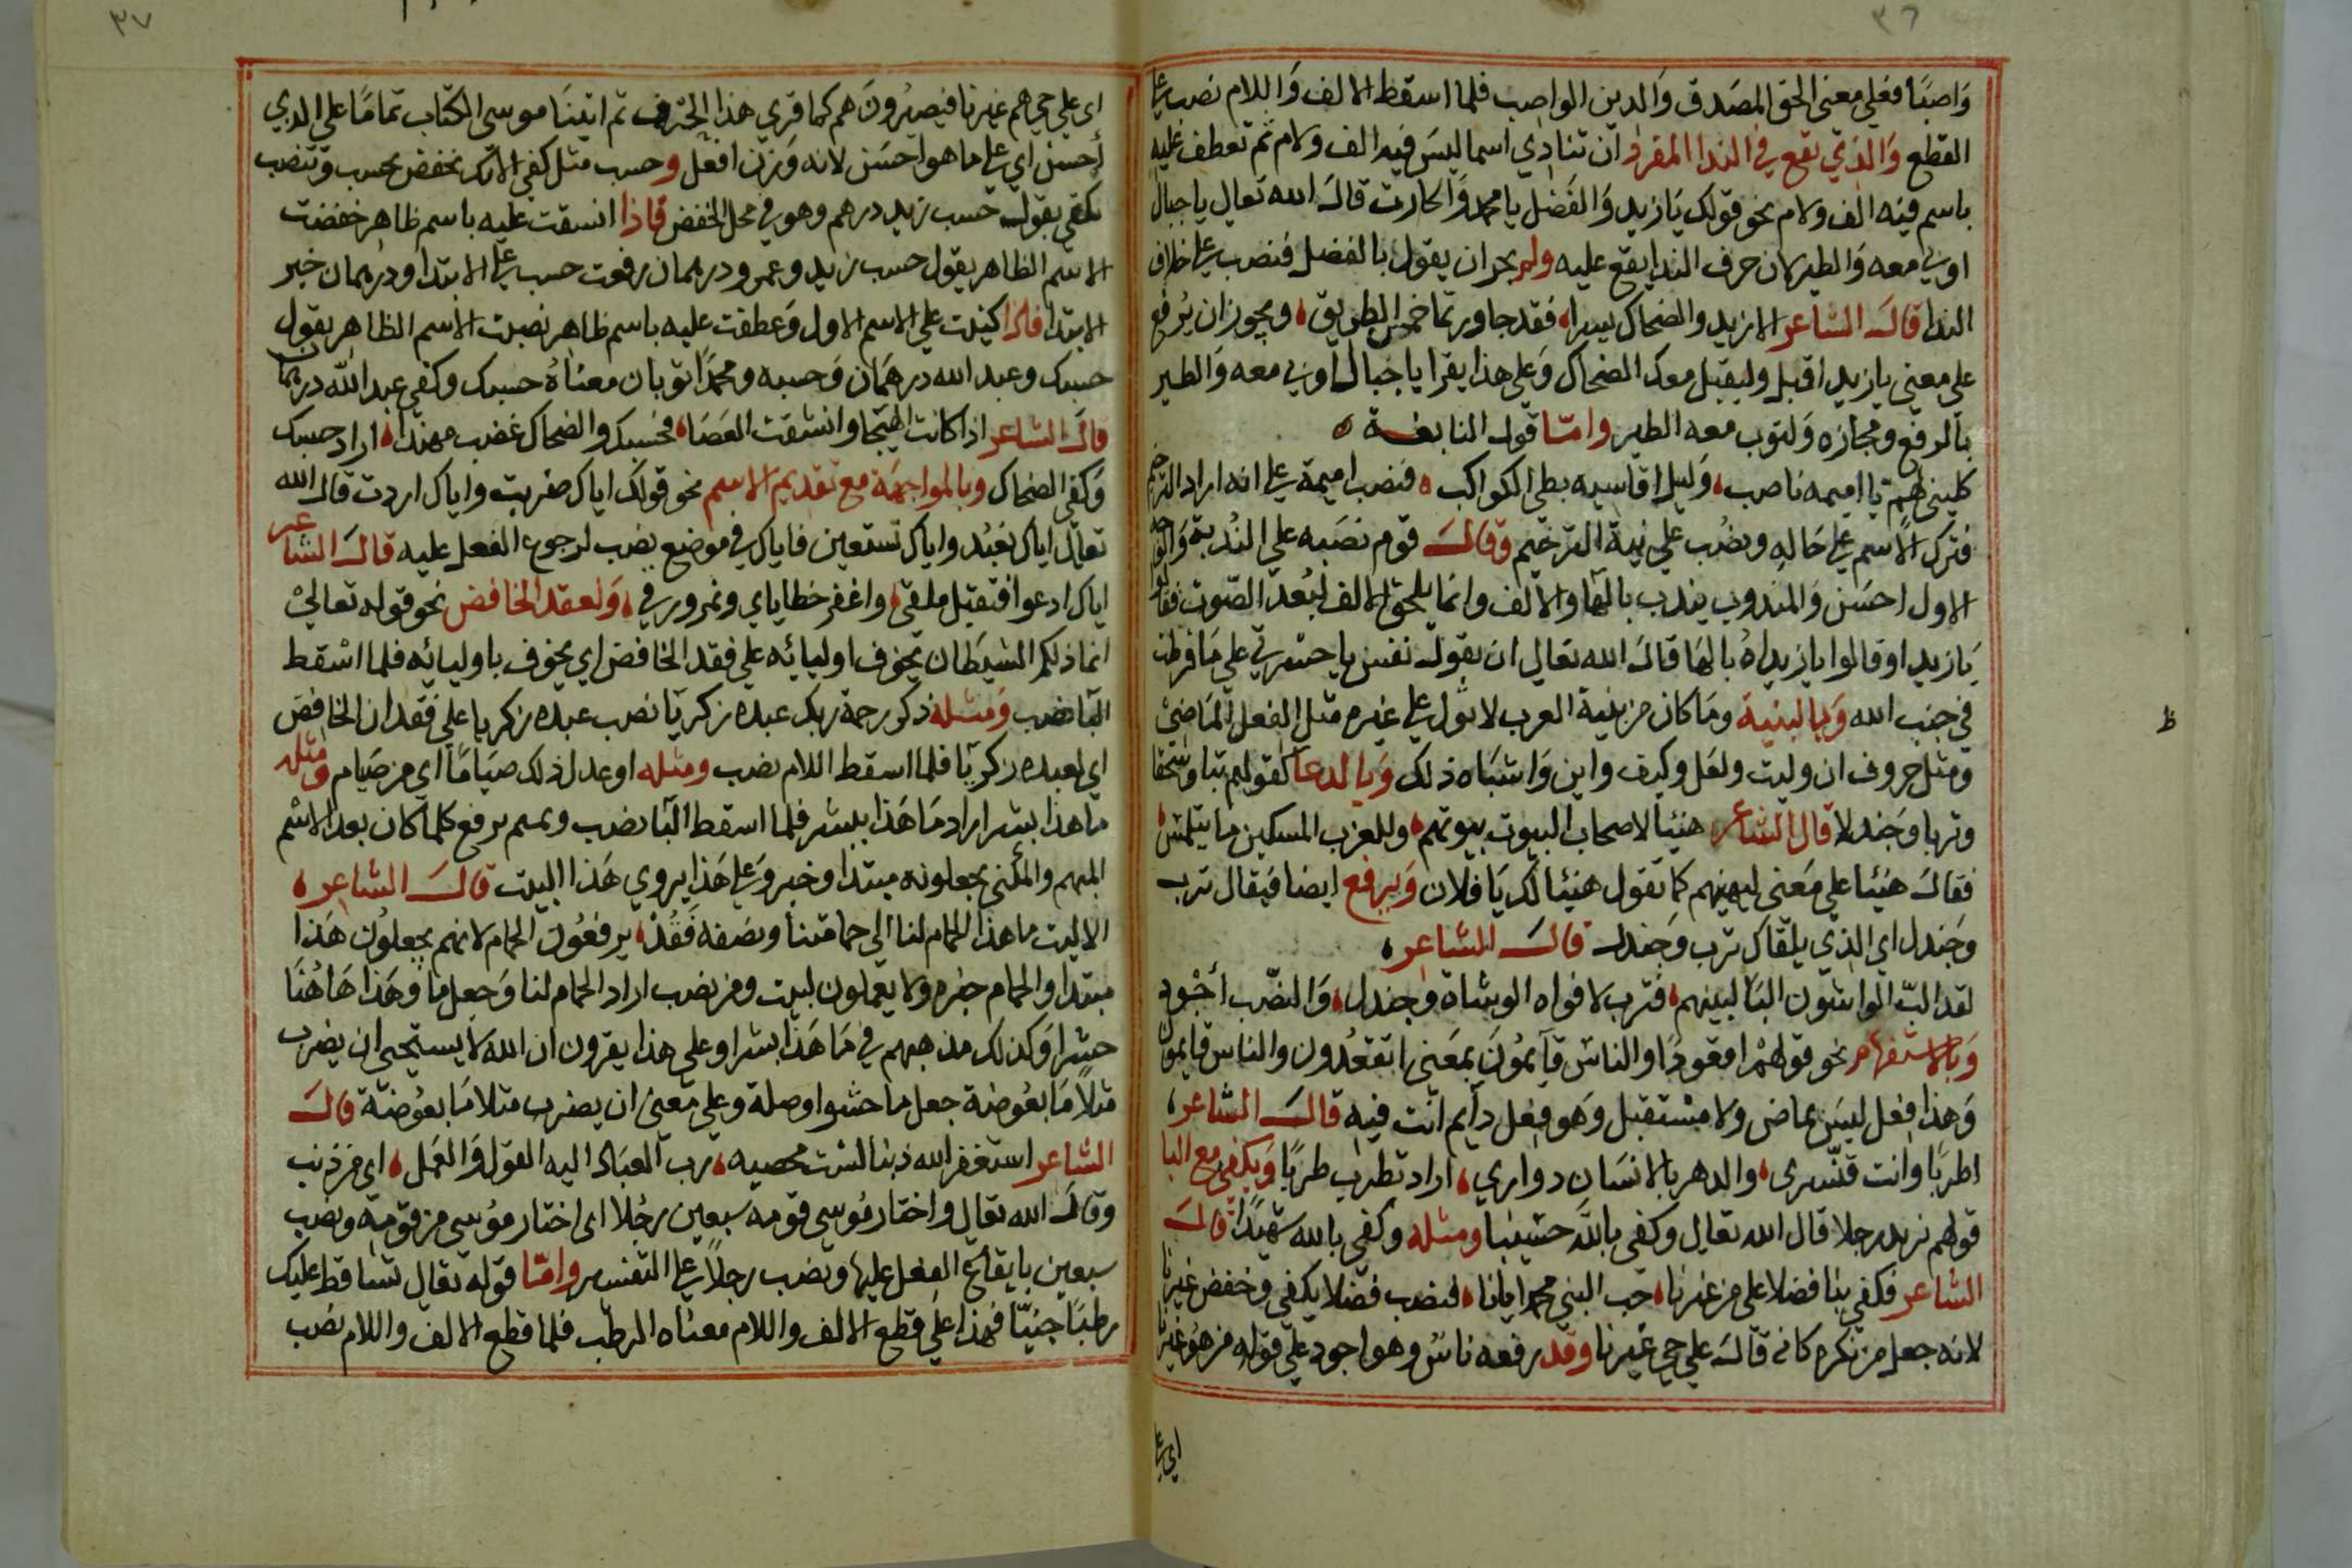 ٣٦
وَاصبًا فعلي معنى الحق المصَدق وَالدين الواصب فلما اسقط الالف وَاللام نصب علي
القطع وَالذي تقع في الندا المفرد ان تنادي اسما ليسَ فيه الف ولام ثم تعطف عليه
باسم فيه الف ولام نحو قولك يَازيد وَالفَضل يا محمد وَالحارث قالَ الله تعالي يا جبال
اوبي معه وَالطير لان حرف الندا يقع عليه ولم يجز ان يقول بالفضل فنصب علي خلاف
الندا قالَ الشاعر الا زيد والضحاك سيرا فقد جاوزتما خمر الطريق ويجوز ان يُرفع
علي معني يا زيد اقبل وليقبل معك الضحاك وَعلي هذا يقرا يا جبال اوبي معه وَالطير
بالرفع ومجازه وَلتوب معه الطير وامّا قول النابغة
كليني لهمّ يا اميمه ناصب وَليل اقاسيه بطي الكواكب فنصب اميمة علي انه اراد الترخيم
فترك الاسم علي حَاله ونصُب علي نية الترخيم وقالَ قوم نصَبه علي النُدبة وَالوجه
الاول احسَن وَالمندوب يندب بالهاو والالف وانما يلحق الالف لبُعد الصّوت فقالوا
يَازيد اوقالوا يا زيداهُ بالها قالَ الله تعالي ان يقول نفس يا حسرتي علي مَا فرطت
في جنب الله وَبالبنية ومَا كان من بنية العرب لا تول علي غيره مثل الفعل الماضي
ومثل حروف ان وليت ولعَل وكيف واين وَاشباه ذلك وَبالدعا كقولهم تبا وسُحقا
وتربا وجندلا قال الشاعر هنيئا لاصحاب البيوت بيوتهم وللعزب المسكين ما يتلمسُ
فقالَ هنيئا علي مَعنى ليهنيهم كما تَقول هنيئا لك يَا فلان وَيرفع ايضا فيَقال ترب
وجَندل اي الذي يلقاك ترب وجَندل قالَ الشاعر
لقد البّ الواشون البًا لبينهم فترب لافواه الوشاة وجندل وَالنصب أجْود
وَبالاستفهام نحو قولهمْ اقعودًا والناسَ قآيمُونَ بمعَنى اتقعُدون والناس قايمون
وَهذا فعل ليسَ بماض ولا مسْتقبل وَهو فِعل دآيم انت فيه قالَ الشاعر
اطربًا وانت قنّسرى والدهر بالانسَان دواري اراد تطرب طربًا وَبكفى مع البا
قولهم نريد رجلا قال الله تعالي وكفى بالله حسَيبا ومثله وكفي بالله شهيدًا قالَ
الشاعر فكفي بنا فضلا على من غيرنا حب النبي محمد ايانا فنصب فضلا بكفي وخفض غيرنا
لانه جعل من نكره كانه قالَ علي حي غيرنا وقد رفعه ناسُ وهو اجود علي قوله من هُو غيرنا
اي علي
ظ
٣٧
اى علي حي هم غيرنا فيصيُرونَ هم كما قري هذا الحرف ثم اتينَا موسى الكتاب تمامًا على الذي
أحسنُ اي علي ما هو احسَن لانه وَزن افعل وحسب مثل كفي الا نك تخفض بحسب وتنصب
بكفي بقول حسب زيد درهم وهو في محل الخفض فاذا انسقت عليه باسم ظاهر خفضت
الاسم الظاهر يقول حسب زيد وعمرو درهمان رفعت حسب علي الابتدا ودرهمان خبر
الابتدا فاذا كنيت علي الاسم الاول وَعطفت عليه باسم ظاهر نصبت الاسم الظاهر يقول
حسبك وعبد الله درهَمان وَحسبه ومحمدًا ثوبان معنَاهُ حسبك وكفى عبد الله درهمان
قالَ الشاعر اذا كانت الهَيجا وانشقت العَصَا فحَسبك والضحاك عَضب مهندا اراد حسبك
وَكفى الضحاك وبالمواجهَة مع تقديم الاسم نحو قولك اياك ضربت واياك اردت قال الله
تعالي اياك نعبُد واياك نستعين فاياك في موضع نصب لرجوع الفعل عليه قالَ الشاعر
اياك ادعوا فتقبّل ملقي واغفر خطاياي وثمرورقي وَلفقد الخافض نحو قوله تعالي
انما ذلكم الشيَطان يخوف اوليائه علي فقد الخافض اي يخوف باوليائه فلما اسْقط
البَا نصب وَمثله ذكر رحمة ربك عبده زكريَا نصب عبده زكريا علي فقدان الخافض
اي لعبده زكريّا فلما اسقط اللام نصب ومثله او عدل ذلك صيَامًا اي من صَيام ومثله
مَا هذا بشرا اراد مَا هَذا ببشر فلما اسقط البَا نصب وتميم ترفع كلما كان بعد الاسْم
المبهم والمكْنى يجعلونه مبتدا وخبر وَعلي هَذا يروي هَذا البيت قالَ الشاعر
الا ليت ما هذا الحمام لنا الى حمامتنا ونصَفه فقُدْ يرفعُون الحمام لانهم يجعلوُن هَذا
مبتدا والحمام خبره ولا يعملون ليت ومن نصب اراد الحمام لنا وَجعل ما وهَذا هَاهُنَا
حشرا وَكذلك مذهبهم في مَا هَذا بشرا وعلي هذا يقرون ان الله لا يستحي ان يضرب
مثلاً مَا بعُوضة جعل ما حَشوا وصلة وعلي معنى ان يضرب مثلا مَا بعوُضة قالَ
الشاعر استغفر الله ذنبا لسْت محصيه رب العبَاد اليه القول وَالعَمل اى من ذنب
وقالَ الله تعالي واختار مُوسي قومه سَبعين رجُلا اى اختار موُسى من قومه ونصب
سبعين بايقاع الفعل عليها ونصب رجلاً علي التفسير وامّا قوله تعالي تساقط عليك
رطبًا جنيّا فهذا علي قطع الالف واللام معناه الرطب فلما قطع الالف واللام نصب